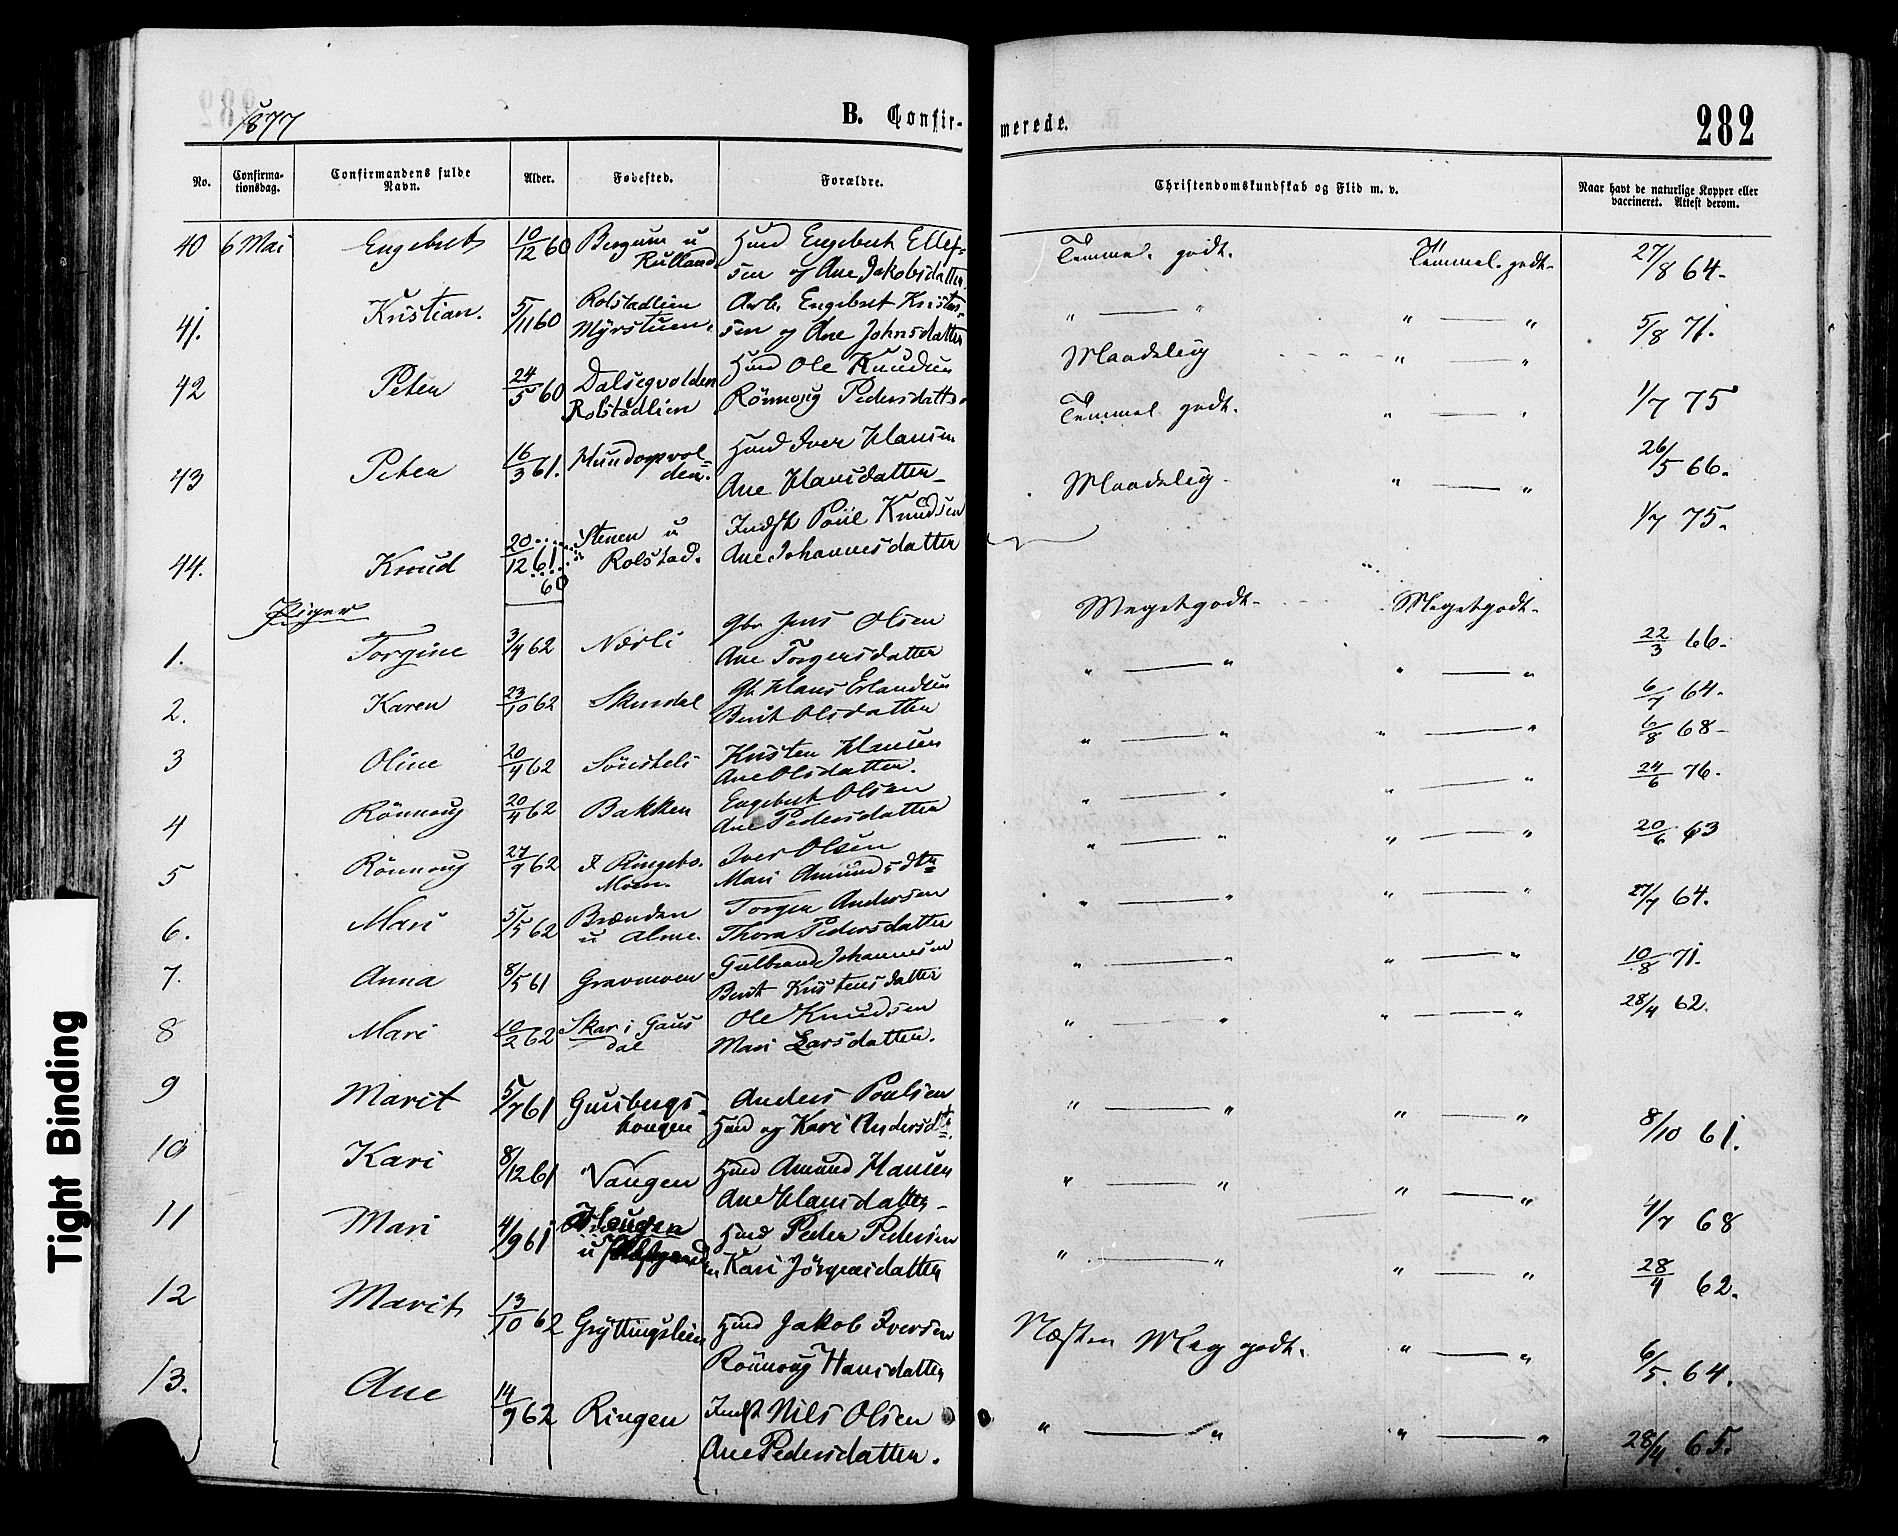 1877
B. Confir-
merede.
282
No.
Confirma-
tionsdag.
Confirmandens fulde
Navn.
Alder.
Fødested.
Forældre.
Christendomskundskab og Flid m. v.
Naar havt de naturlige Kopper eller
vaccineret. Attest derom.
40 6 Mai Engebret 10/12 60 Bergum u Husd Engebret Ellef- Temmel. godt. Temmel. godt. 27/8 64.
Rulland. sen og Ane Jakobsdatter
41. Kristian. 5/11 60 Rolstadlien Arb. Engebret Kristen- " — " " — " 5/8 71.
Myrstuen. sen og Ane Johnsdatter
42 Peter 24/5 60 Dalsegvolden Husd Ole Knudsen Maadelig " — " 1/7 75
Rolstadlien Rönnoug Pedersdatter
43 Peter 16/3 61. Hundorpvol Husd Iver Hansen Temmel godt. " — " 26/5 66.
den. Ane Hansdatter
44. Knud 20/12 61. Stenen u Indst Poul Knudsen Maadelig " — " 1/7 75.
60 Rolstad. Ane Johannesdatter
Piger
1. Torgine 3/4 62 Nærli Gbr Jens Olsen Meget godt. Meget godt. 22/3 66.
Ane Torgersdatter
2. Karen 23/10 62 Skurdal Gb. Hans Erlandsen " — " " — " 6/7 64.
Berit Olsdatter
3 Oline 20/4 62 Sönsteli Kristen Hansen " — " " — " 6/8 68
Ane Olsdatter.
4 Rönnoug 20/4 62 Bakken Engebret Olsen " — " " — " 24/6 76.
Ane Pedersdatter
5 Rönnoug 27/9 62 Ringebo. Iver Olsen " — " " — " 20/6 63
Moen. Mari Amundsdtr
6. Mari 5/5 62 Brænden Torger Andersen " — " " — " 27/7 64.
u Alme. Thora Pedersdatter
7. Anna 8/5 61 Gravmoen Gulbrand Johannesen " — " " — " 10/8 71.
Berit Kristensdatter
8 Mari 10/2 62 Skar i Gaus Ole Knudsen " — " " — " 28/4 62.
dal Mari Larsdatter.
9 Marit 5/7 61 Guusbergs- Anders Poulsen " — " " — " 8/10 61.
hougen Husd og Kari Andersdtr.
10 Kari 8/12 61 Vangen Husd Amund Hansen " — " " — " 4/7 68
Ane Hansdatter
11 Mari 4/9 61 Haugen Husd Peder Pedersen " — " " — " 28/4 62.
u Kari Jörgensdatter
12 Marit 13/10 62 Gryttingslien Husd Jakob Iversen Næsten Meg godt. " — " 6/5. 64.
Rönnoug Hansdatter
13. Ane 14/9 62 Ringen Indst Nils Olsen " — " " — " 28/4 65.
Ane Pedersdatter.
Tight Binding